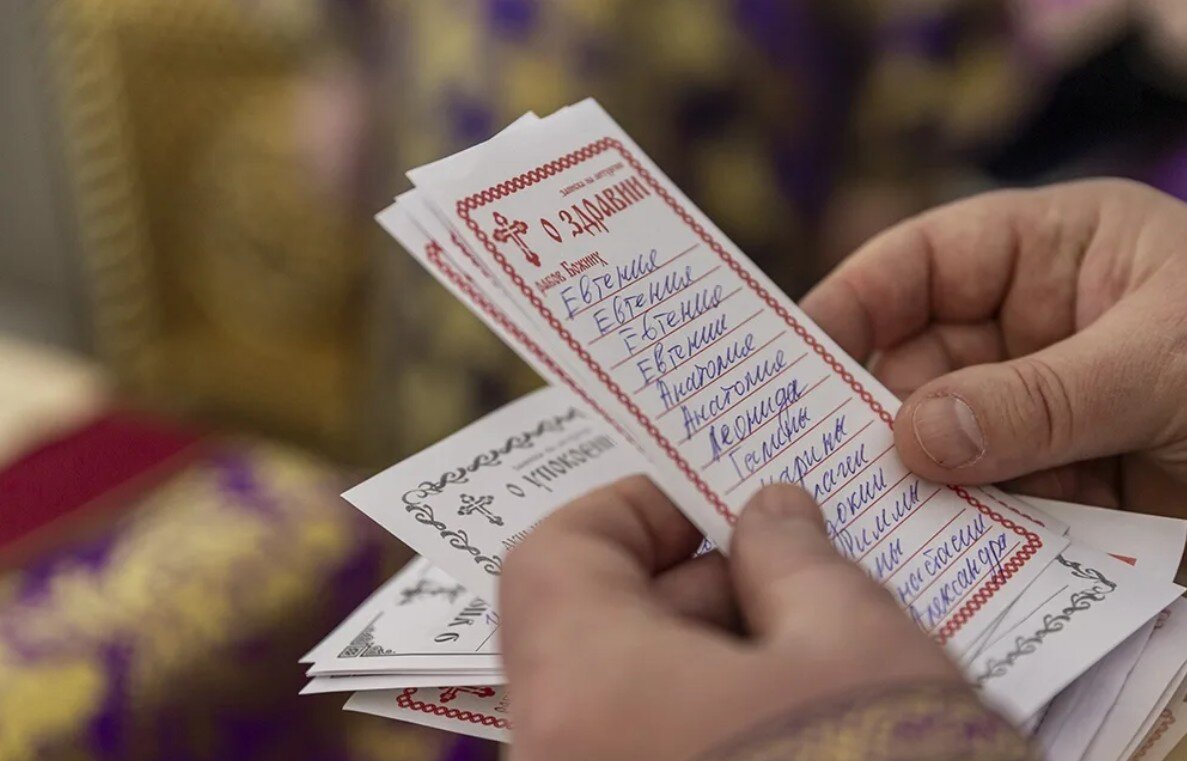 записка на литургию
О ЗДРАВИИ
рабов Божиих
Евгения
Евгения
Евгения
Евгении
Анатолия
Анатолия
Леонида
Галины
Марины
Риммы
Анастасии
Александра
О УПОКОЕНИИ